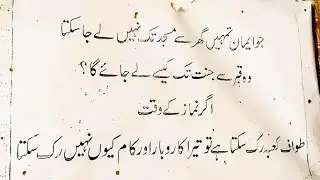 جو ایمان تمہیں گھر سے مسجد تک نہیں لے جا سکتا
وہ قبر سے جنت تک کیسے لے جائے گا ؟
اگر نماز کے وقت
طواف کعبہ رک سکتا ہے تو تیرا کاروبار اور کام کیوں نہیں رک سکتا